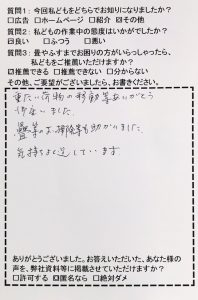 質問1：今回私どもをどちらでお知りになりましたか？
□広告 □ホームページ □紹介 ☑その他
質問2：私どもの作業中の態度はいかがでしたか？
☑良い □ふつう □悪い
質問3：畳やふすまでお困りの方がいらっしゃったら、
私どもをご推薦いただけますか？
☑推薦できる □推薦できない □分からない
その他、ご要望がございましたら、お書きください。
重たい荷物の移動等ありがとう
ございました。
畳等のお掃除等も助かりました。
気持ちよく過しています。
ありがとうございました。お答えいただいた、あなた様の
声を、弊社資料等に掲載させていただけますか？
□許可する ☑匿名なら □絶対ダメ